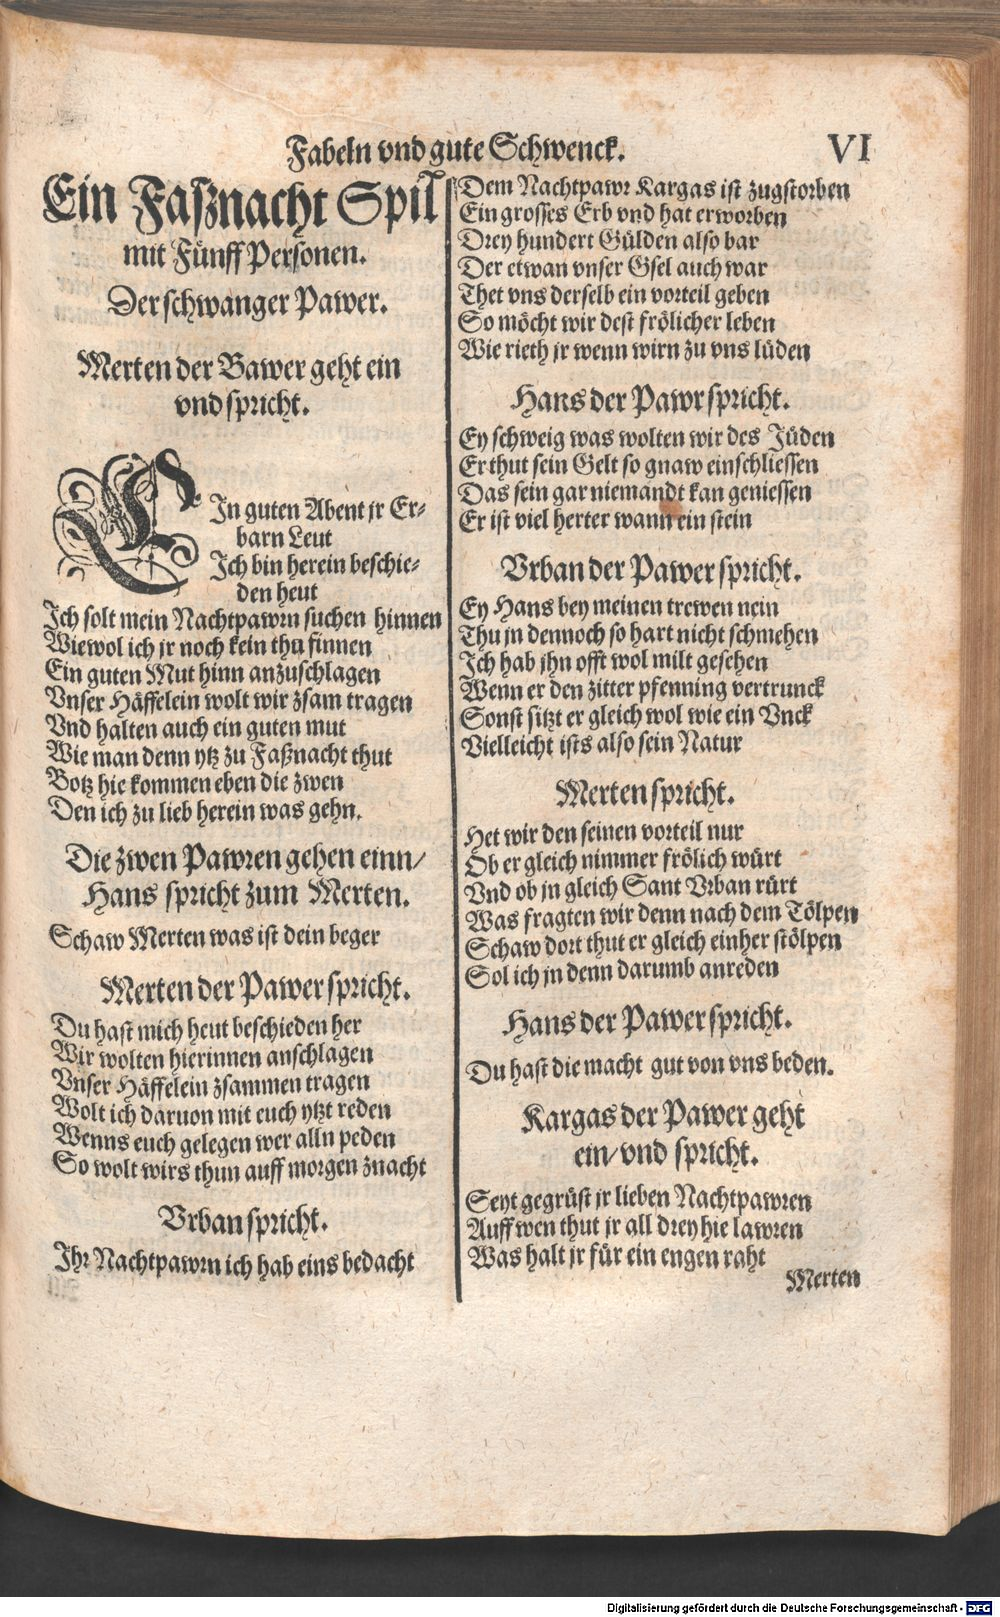 Fabeln vnd gute Schwenck.
VI
Ein Faſznacht Spil
mit Fünff Perſonen.
Der ſchwanger Pawer.
Merten der Bawer geht ein
vnd ſpricht.
EIn guten Abent jr Er-
barn Leut
Ich bin herein beſchie-
den heut
Ich ſolt mein Nachtpawrn ſuchen hinnen
Wiewol ich jr noch kein thu finnen
Ein guten Mut hinn anzuſchlagen
Vnſer Häffelein wolt wir zſam tragen
Vnd halten auch ein guten mut
Wie man denn ytz zu Faßnacht thut
Botz hie kommen eben die zwen
Den ich zu lieb herein was gehn.
Die zwen Pawren gehen einn/
Hans ſpricht zum Merten.
Schaw Merten was iſt dein beger
Merten der Pawer ſpricht.
Du haſt mich heut beſchieden her
Wir wolten hierinnen anſchlagen
Vnſer Häffelein zſammen tragen
Wolt ich daruon mit euch ytzt reden
Wenns euch gelegen wer alln peden
So wolt wirs thun auff morgen znacht
Vrban ſpricht.
Ihr Nachtpawrn ich hab eins bedacht
Dem Nachtpawr Kargas iſt zugſtorben
Ein groſſes Erb vnd hat erworben
Drey hundert Gülden alſo bar
Der etwan vnſer Gſel auch war
Thet vns derſelb ein vorteil geben
So möcht wir deſt frölicher leben
Wie rieth jr wenn wirn zu vns lüden
Hans der Pawr ſpricht.
Ey ſchweig was wolten wir des Jüden
Er thut ſein Gelt ſo gnaw einſchlieſſen
Das ſein gar niemandt kan genieſſen
Er iſt viel herter wann ein ſtein
Vrban der Pawer ſpricht.
Ey Hans bey meinen trewen nein
Thu jn dennoch ſo hart nicht ſchmehen
Ich hab jhn offt wol milt geſehen
Wenn er den zitter pfenning vertrunck
Sonſt ſitzt er gleich wol wie ein Vnck
Vielleicht iſts alſo ſein Natur
Merten ſpricht.
Het wir den ſeinen vorteil nur
Ob er gleich nimmer frölich würt
Vnd ob jn gleich Sant Vrban rürt
Was fragten wir denn nach dem Tölpen
Schaw dort thut er gleich einher ſtölpen
Sol ich jn denn darumb anreden
Hans der Pawer ſpricht.
Du haſt die macht gut von vns beden.
Kargas der Pawer geht
ein/ vnd ſpricht.
Seyt gegrüſt jr lieben Nachtpawren
Auff wen thut jr all drey hie lawren
Was halt jr für ein engen raht
Merten
Digitalisierung gefördert durch die Deutsche Forschungsgemeinschaft - DFG